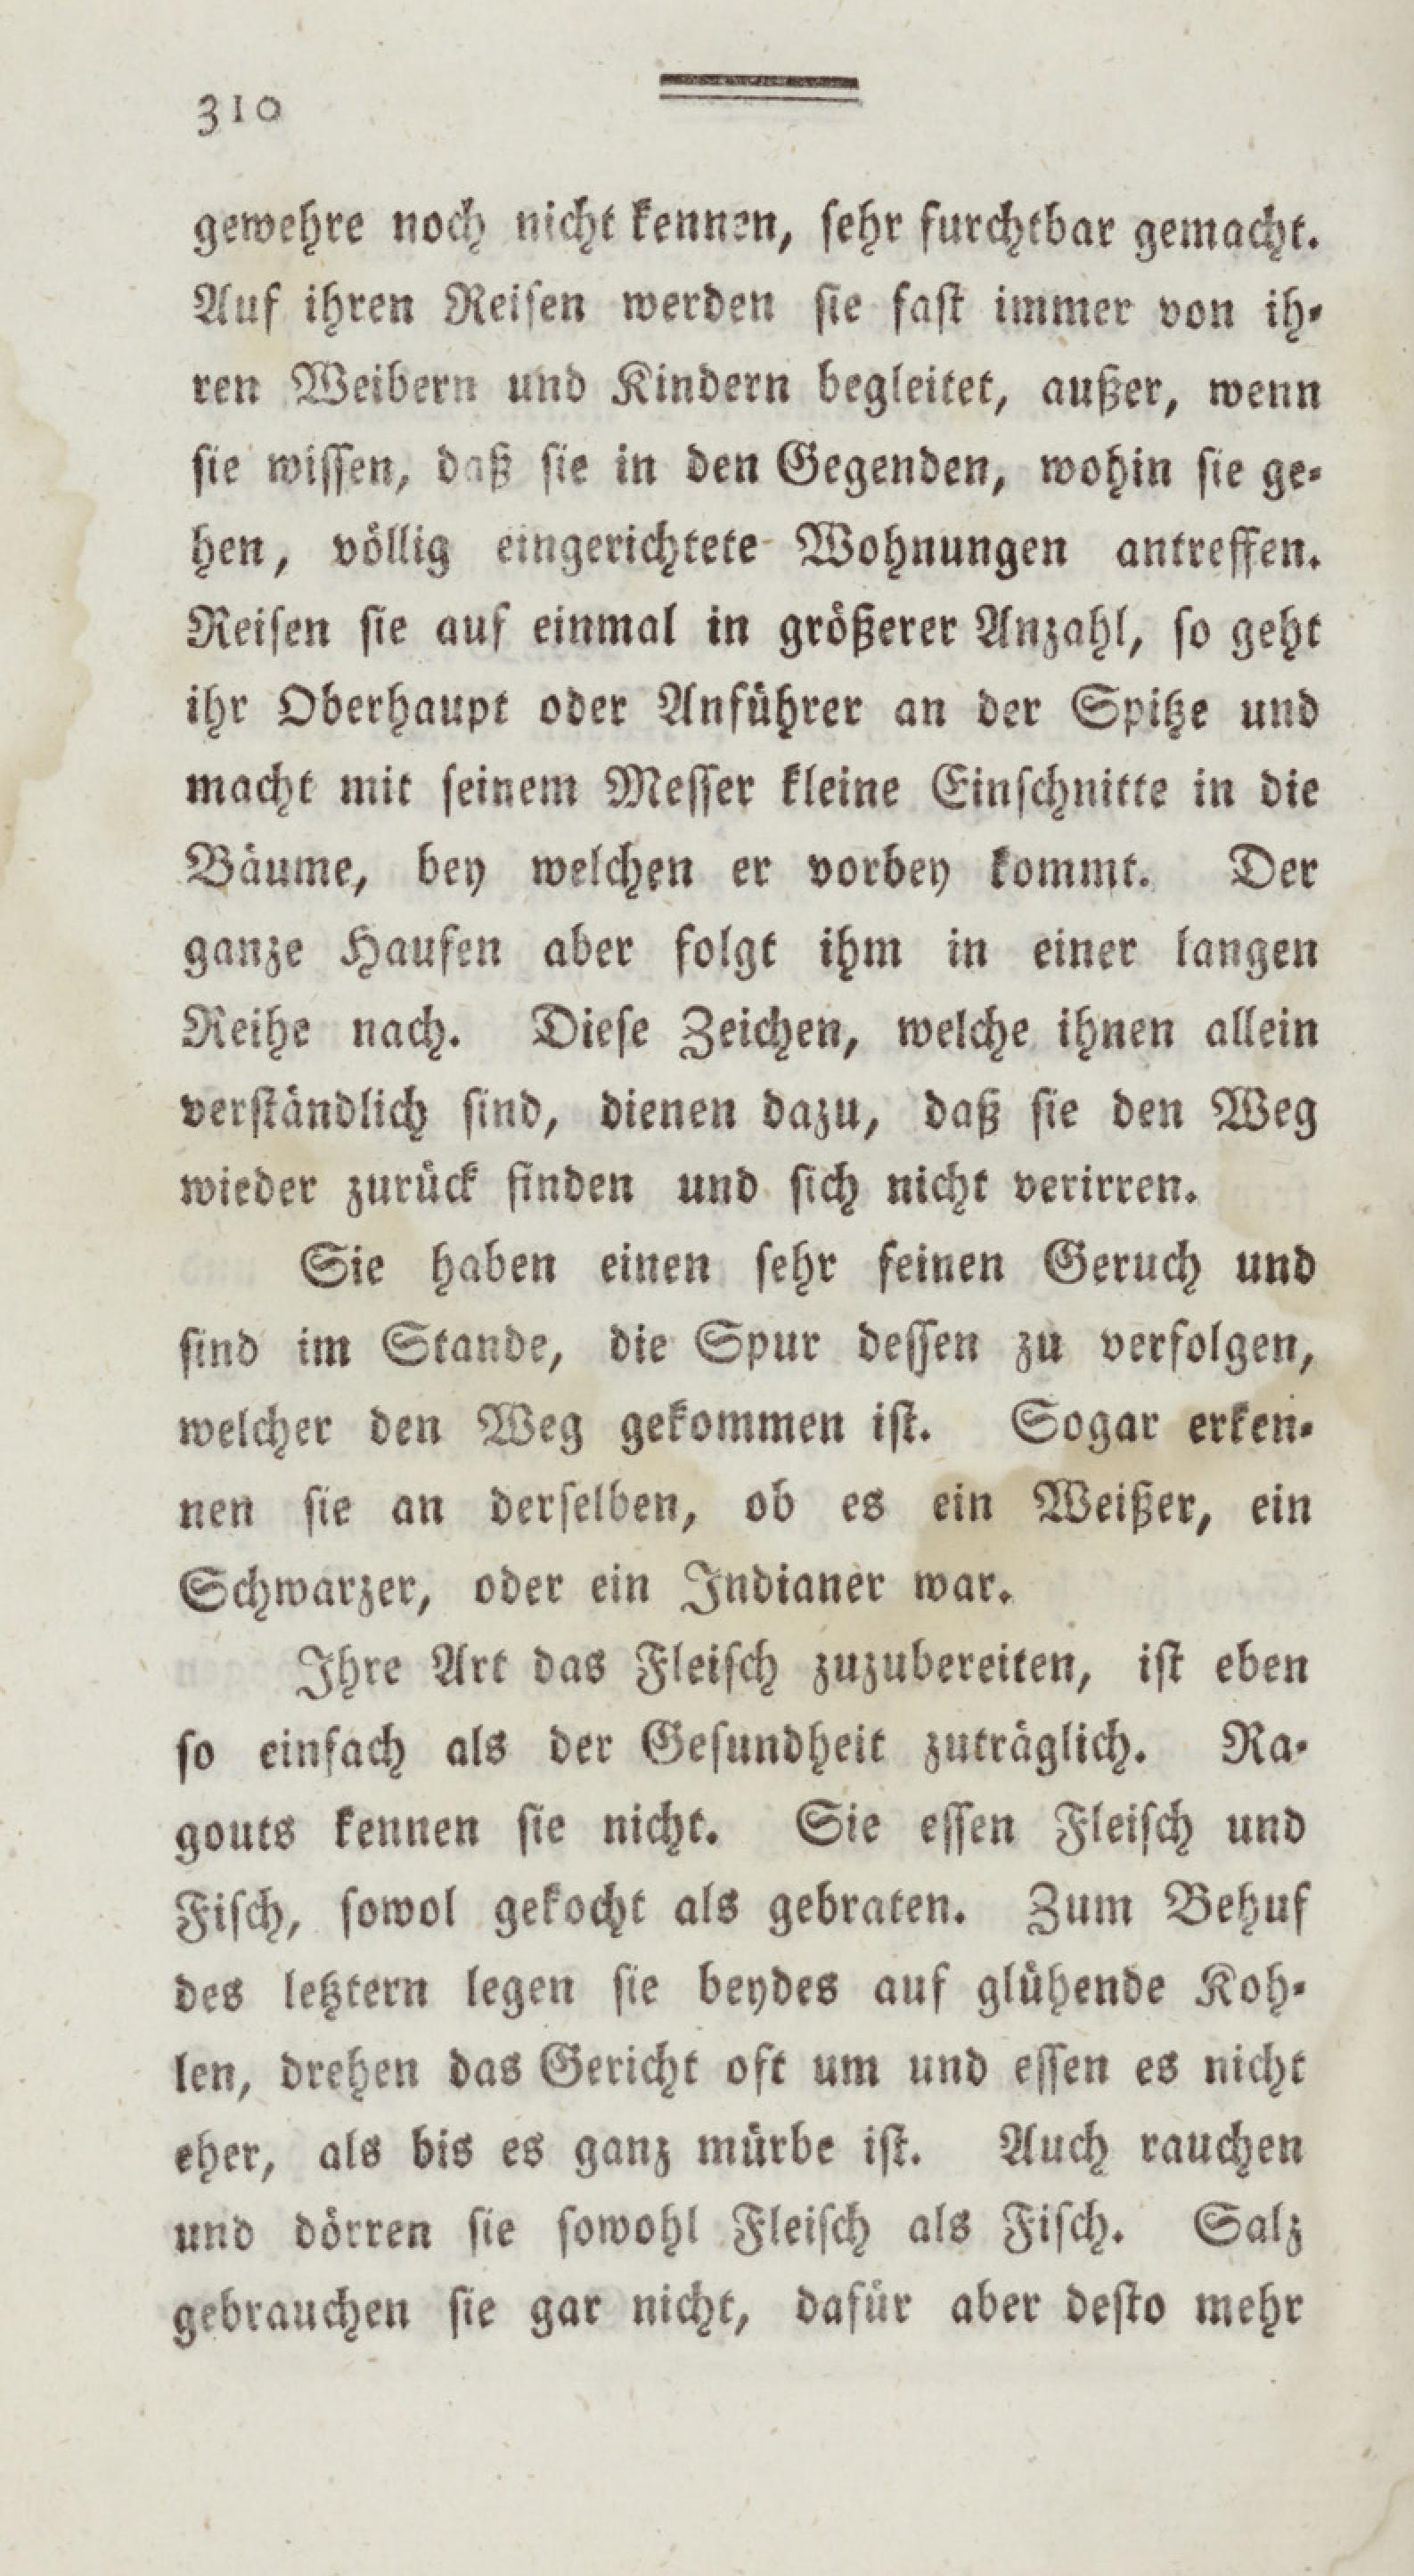 310
gewehre noch nicht kennen, sehr furchtbar gemacht.
Auf ihren Reisen werden sie fast immer von ih-
ren Weibern und Kindern begleitet, außer, wenn
sie wissen, daß sie in den Gegenden, wohin sie ge-
hen, völlig eingerichtete Wohnungen antreffen.
Reisen sie auf einmal in größerer Anzahl, so geht
ihr Oberhaupt oder Anführer an der Spitze und
macht mit seinem Messer kleine Einschnitte in die
Bäume, bey welchen er vorbey kommt. Der
ganze Haufen aber folgt ihm in einer langen
Reihe nach. Diese Zeichen, welche ihnen allein
verständlich sind, dienen dazu, daß sie den Weg
wieder zurück finden und sich nicht verirren.
Sie haben einen sehr feinen Geruch und
sind im Stande, die Spur dessen zu verfolgen,
welcher den Weg gekommen ist. Sogar erken-
nen sie an derselben, ob es ein Weißer, ein
Schwarzer, oder ein Indianer war.
Ihre Art das Fleisch zuzubereiten, ist eben
so einfach als der Gesundheit zuträglich. Ra-
gouts kennen sie nicht. Sie essen Fleisch und
Fisch, sowol gekocht als gebraten. Zum Behuf
des letztern legen sie beydes auf glühende Koh-
len, drehen das Gericht oft um und essen es nicht
eher, als bis es ganz mürbe ist. Auch rauchen
und dörren sie sowohl Fleisch als Fisch. Salz
gebrauchen sie gar nicht, dafür aber desto mehr